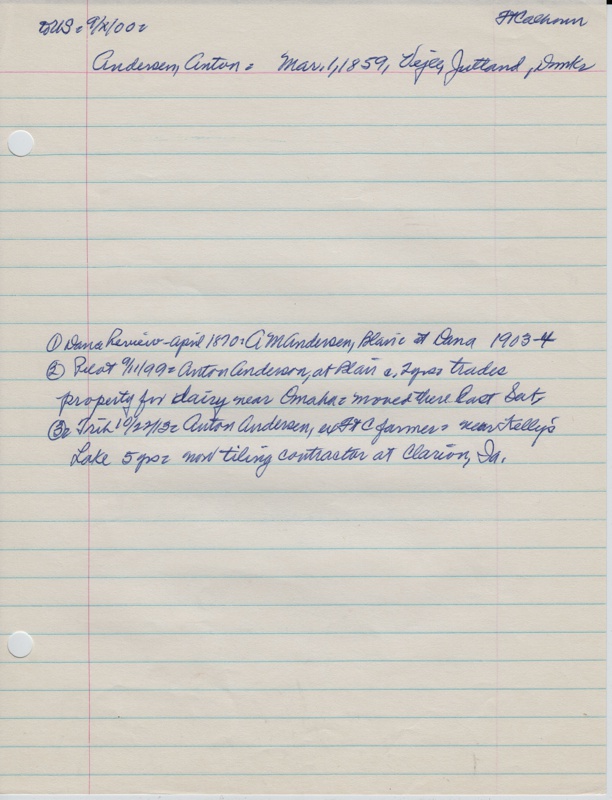 to US = 9/2/00 =
Ft Calhoun
Andersen, Anton = Mar. 1, 1859, Vejle, Jutland, Dmk
① Dana Review - April 1870: A M Andersen, Blair = at Dana 1903-4
② Pilot 9/11/99 = Anton Anderson, at Blair c. 2 yrs = trades
property for dairy near Omaha = moved there last Sat,
③ = Trib 10/22/13 = Anton Andersen, ex Ft C farmer = near Kelly's
Lake 5 yrs = now tiling contractor at Clarion, Ia.